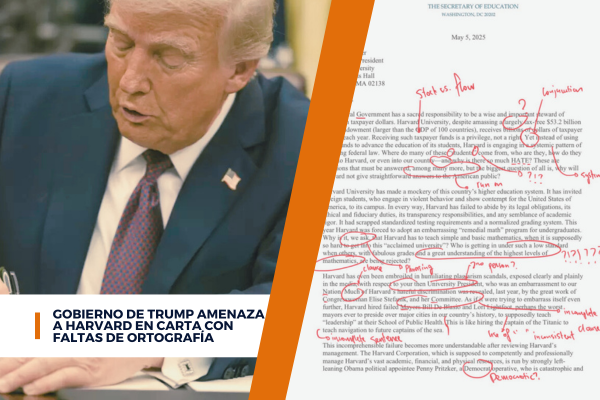 THE SECRETARY OF EDUCATION
WASHINGTON, DC 20202
May 5, 2025
resident
versity
s Hall
MA 02138
start vs. flow
conjunction
al Government has a sacred responsibility to be a wise and important steward of
taxpayer dollars. Harvard University, despite amassing a largely tax-free $53.2 billion
dowment (larger than the GDP of 100 countries), receives billions of dollars of taxpayer
year. Receiving such taxpayer funds is a privilege, not a right. Yet instead of using
unds to advance the education of its students, Harvard is engaging in a systemic pattern of
ng federal law. Where do many of these students come from, who are they, how do they
to Harvard, or even into our country—and why is there so much HATE? These are
ions that must be answered, among many more, but the biggest question of all is, why will
ard not give straightforward answers to the American public?
run on
?!?
Harvard University has made a mockery of this country's higher education system. It has invited
reign students, who engage in violent behavior and show contempt for the United States of
merica, to its campus. In every way, Harvard has failed to abide by its legal obligations, its
hical and fiduciary duties, its transparency responsibilities, and any semblance of academic
gor. It had scrapped standardized testing requirements and a normalized grading system. This
year Harvard was forced to adopt an embarrassing "remedial math" program for undergraduates.
Why is it, we ask, that Harvard has to teach simple and basic mathematics, when it is supposedly
so hard to get into this "acclaimed university"? Who is getting in under such a low standard
when others, with fabulous grades and a great understanding of the highest levels of
mathematics, are being rejected?
clause
phrasing
Harvard has even been embroiled in humiliating plagiarism scandals, exposed clearly and plainly
in the media with respect to your then University President, who was an embarrassment to our
Nation. Much of Harvard's hateful discrimination was revealed, last year, by the great work of
Congresswoman Elise Stefanik, and her Committee. As if it were trying to embarrass itself even
further, Harvard hired failed Mayors Bill De Blasio and Lori Lightfoot, perhaps the worst
mayors ever to preside over major cities in our country's history, to supposedly teach
"leadership" at their School of Public Health. This is like hiring the captain of the Titanic to
teach navigation to future captains of the sea.
incomplete
incomplete sentence
inconsistent clause
This incomprehensible failure becomes more understandable after reviewing Harvard's
management. The Harvard Corporation, which is supposed to competently and professionally
manage Harvard's vast academic, financial, and physical resources, is run by strongly left-
leaning Obama political appointee Penny Pritzker, a Democrat operative, who is catastrophic and
Democratic?
GOBIERNO DE TRUMP AMENAZA
A HARVARD EN CARTA CON
FALTAS DE ORTOGRAFÍA